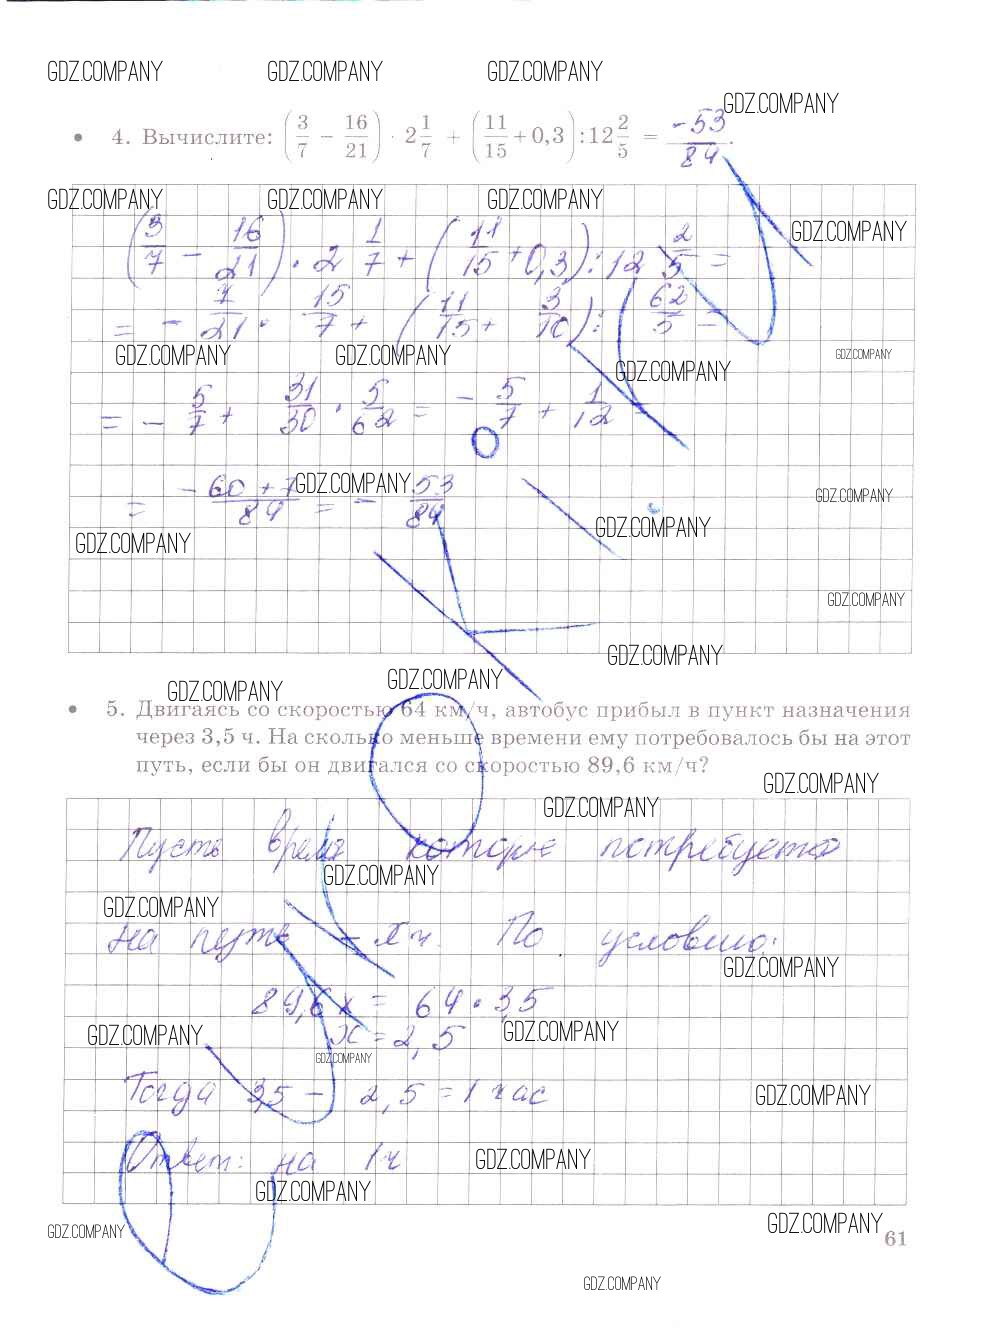 GDZ.COMPANY GDZ.COMPANY GDZ.COMPANY
GDZ.COMPANY
4. Вычислите: (3/7 − 16/21) · 2 1/7 + (11/15 + 0,3) : 12 2/5 = -53/84.
GDZ.COMPANY GDZ.COMPANY GDZ.COMPANY
GDZ.COMPANY
(3/7 − 16/21) · 2 1/7 + (11/15 + 0,3) : 12 2/5 =
= − 7/21 · 15/7 + (11/15 + 3/10) : 62/5 =
GDZ.COMPANY GDZ.COMPANY GDZ.COMPANY
GDZ.COMPANY
= − 5/7 + 31/30 · 5/62 = − 5/7 + 1/12
GDZ.COMPANY GDZ.COMPANY
= −60 + 7/84 = − 53/84
GDZ.COMPANY GDZ.COMPANY
GDZ.COMPANY
GDZ.COMPANY
GDZ.COMPANY GDZ.COMPANY
5. Двигаясь со скоростью 64 км/ч, автобус прибыл в пункт назначения
через 3,5 ч. На сколько меньше времени ему потребовалось бы на этот
путь, если бы он двигался со скоростью 89,6 км/ч?
GDZ.COMPANY
GDZ.COMPANY
Пусть время которое потребуется
GDZ.COMPANY
GDZ.COMPANY
на путь – x ч. По условию:
GDZ.COMPANY
89,6x = 64 · 3,5
GDZ.COMPANY x = 2,5 GDZ.COMPANY
GDZ.COMPANY
Тогда 3,5 – 2,5 = 1 час
GDZ.COMPANY
Ответ: на 1 ч
GDZ.COMPANY
GDZ.COMPANY
GDZ.COMPANY GDZ.COMPANY
61
GDZ.COMPANY